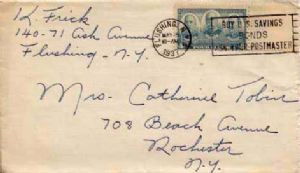 K. Frick
140-71 Ash Avenue
Flushing - N.Y.
FLUSHING, N.Y.
1937
BUY U.S. SAVINGS
BONDS
ASK YOUR POSTMASTER
Mrs. Catherine Tobin
708 Beach Avenue
Rochester
N.Y.